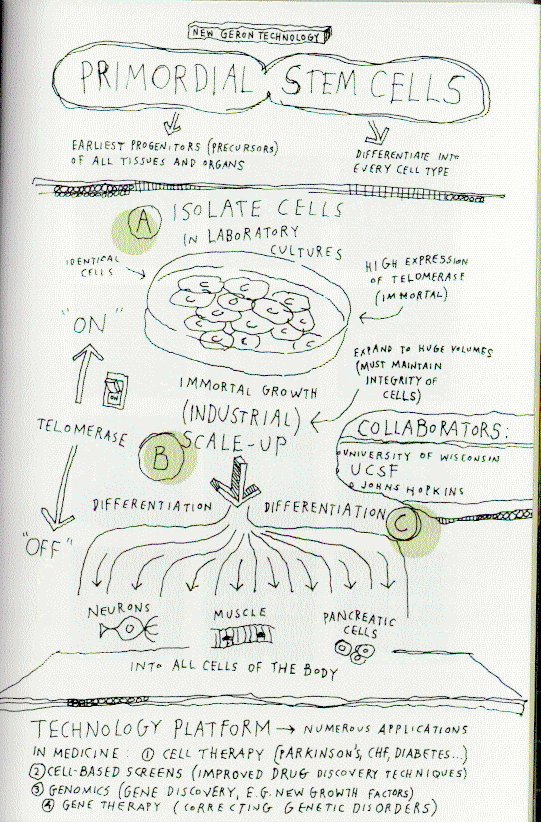 NEW GERON TECHNOLOGY
PRIMORDIAL STEM CELLS
EARLIEST PROGENITORS (PRECURSORS)
OF ALL TISSUES AND ORGANS
DIFFERENTIATE INTO
EVERY CELL TYPE
A
ISOLATE CELLS
IN LABORATORY
CULTURES
IDENTICAL
CELLS
HIGH EXPRESSION
OF TELOMERASE
(IMMORTAL)
C C C C O C C C C C C C C
"ON"
ON
EXPAND TO HUGE VOLUMES
(MUST MAINTAIN
INTEGRITY OF
CELLS)
IMMORTAL GROWTH
(INDUSTRIAL)
SCALE-UP
TELOMERASE
B
COLLABORATORS:
UNIVERSITY OF WISCONSIN
UCSF
JOHNS HOPKINS
DIFFERENTIATION
DIFFERENTIATION
C
"OFF"
NEURONS
MUSCLE
PANCREATIC
CELLS
INTO ALL CELLS OF THE BODY
TECHNOLOGY PLATFORM → NUMEROUS APPLICATIONS
IN MEDICINE: ① CELL THERAPY (PARKINSON'S, CHF, DIABETES...)
② CELL-BASED SCREENS (IMPROVED DRUG DISCOVERY TECHNIQUES)
③ GENOMICS (GENE DISCOVERY, E.G. NEW GROWTH FACTORS)
④ GENE THERAPY (CORRECTING GENETIC DISORDERS)